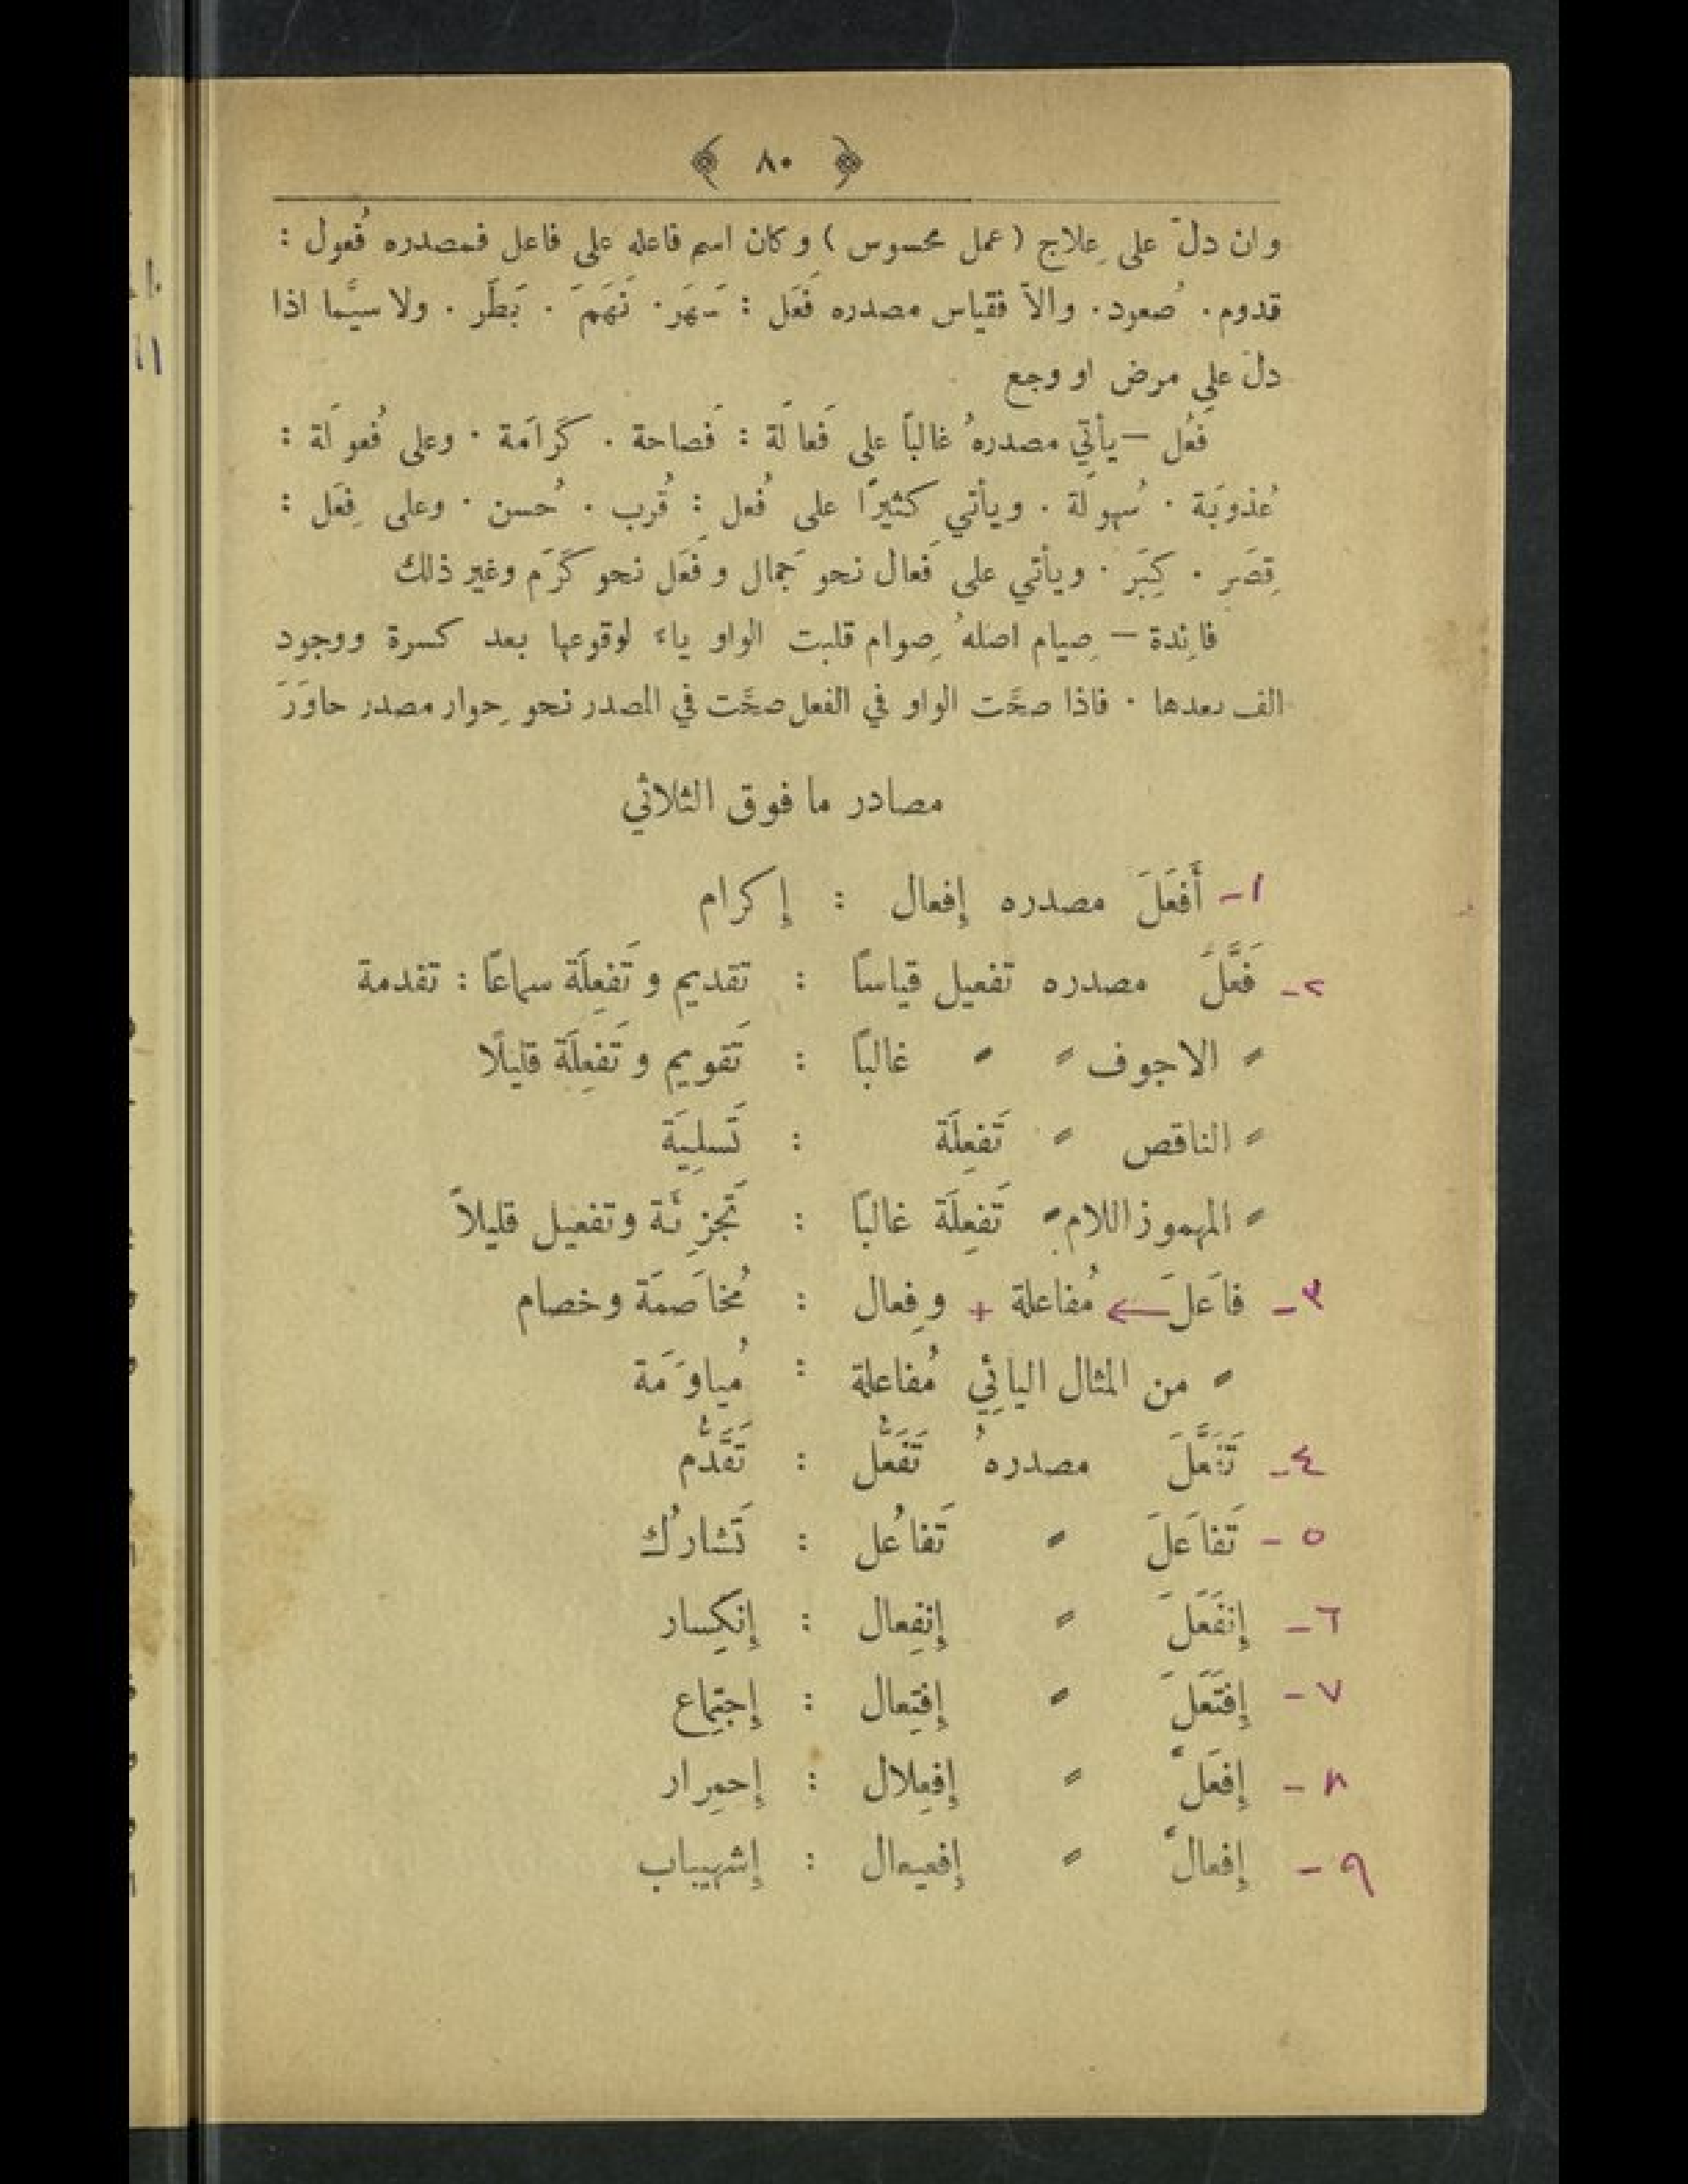 ﴿ ٨٠ ﴾
وان دلّ على عِلاج (عمل محسوس) وكان اسم فاعله على فاعل فمصدره فُعول :
قدوم . صُعود . والاّ فقياس مصدره فَعَل : سَهَر . نَهَمَ . بَطَر . ولا سيَّما اذا
دلّ على مرض او وجع
فَعُل — يأتي مصدرهُ غالبًا على فَعالَة : فَصاحة . كَرَامَة . وعلى فُعولَة :
عُذوبَة . سُهولَة . ويأتي كثيرًا على فُعل : قُرب . حُسن . وعلى فِعَل :
قِصَر . كِبَر . ويأتي على فَعال نحو جَمال وفَعَل نحو كَرَم وغير ذلك
فائِدة — صِيام اصلهُ صِوام قلبت الواو ياء لوقوعها بعد كسرة ووجود
الف بعدها . فاذا صحَّت الواو في الفعل صحَّت في المصدر نحو حِوار مصدر حاوَرَ
مصادر ما فوق الثلاثي
١- أَفعَلَ مصدره إِفعال : إِكرام
٢- فَعَّلَ مصدره تفعيل قياسًا : تقديم وتَفعِلَة سماعًا : تقدمة
〃 الاجوف 〃 〃 غالبًا : تَقويم وتَفعِلَة قليلًا
〃 الناقص 〃 تَفعِلَة : تَسلِيَة
〃 المهموز اللام 〃 تَفعِلَة غالبًا : تَجزِئَة وتفعيل قليلاً
٣- فاعَلَ ← مُفاعلة + وفِعال : مُخاصَمَة وخصام
〃 من المثال اليائِي مُفاعلة : مُياوَمَة
٤- تَفَعَّلَ مصدرهُ تَفَعُّل : تَقَدُّم
٥- تَفاعَلَ 〃 تَفاعُل : تَشارُك
٦- إِنفَعَلَ 〃 إِنفِعال : إِنكِسار
٧- إِفتَعَلَ 〃 إِفتِعال : إِجتِماع
٨- إِفعَلَّ 〃 إِفعِلال : إِحمِرار
٩- إِفعالَّ 〃 إِفعيعال : إِشهيباب